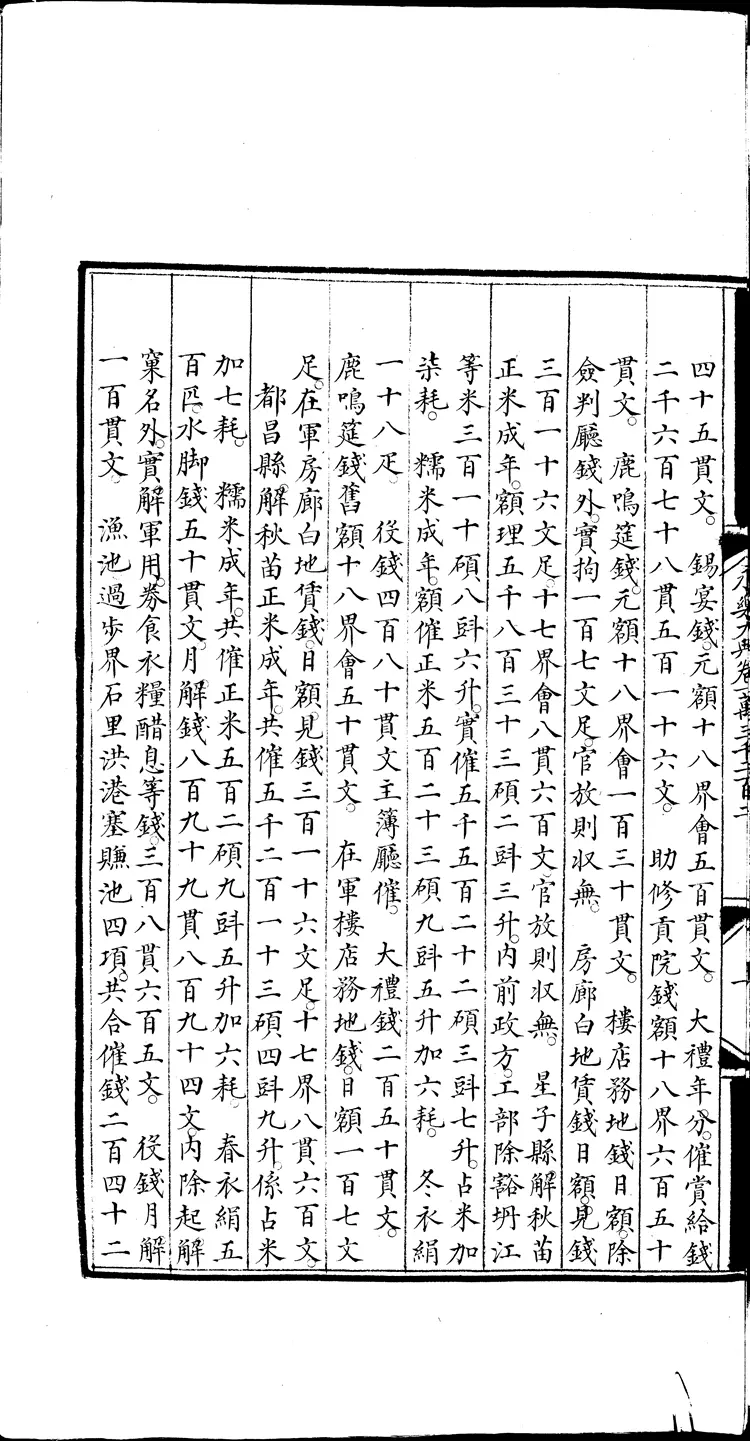 四十五貫文。　錫宴錢。元額十八界會五百貫文。　大禮年分。催賞給錢
二千六百七十八貫五百一十六文。　助修貢院錢額十八界六百五十
貫文。　鹿鳴筵錢。元額十八界會一百三十貫文。　樓店務地錢日額。除
僉判廳錢外。實拘一百七文足。官放則收無。　房廊白地賃錢日額。見錢
三百一十六文足。十七界會八貫六百文。官放則收無。　星子縣解秋苗
正米成年。額理五千八百三十三碩二㪷三升。內前政方。工部除豁坍江
等米三百一十碩八㪷六升。實催五千五百二十二碩三㪷七升。占米加
柒耗。　糯米成年。額催正米五百二十三碩九㪷五升加六耗。　冬衣絹
一十八疋。　役錢四百八十貫文主簿廳催。　大禮錢二百五十貫文。
鹿鳴筵錢舊額十八界會五十貫文。　在軍樓店務地錢。日額一百七文
足。在軍房廊白地賃錢。日額。見錢三百一十六文足。十七界八貫六百文。
都昌縣。解秋苗正米成年。共催五千二百一十三碩四㪷九升。係占米
加七耗。　糯米成年。共催正米五百二碩九㪷五升加六耗。　春衣絹五
百匹。水脚錢五十貫文。月解錢八百九十九貫八百九十四文。內除起解
窠名外。實解軍用。券食衣糧醋息等錢。三百八貫六百五文。　役錢月解
一百貫文。　漁池過步界石里洪港塞賺池四項。共合催錢二百四十二
永樂大典卷一萬三千二百二
一